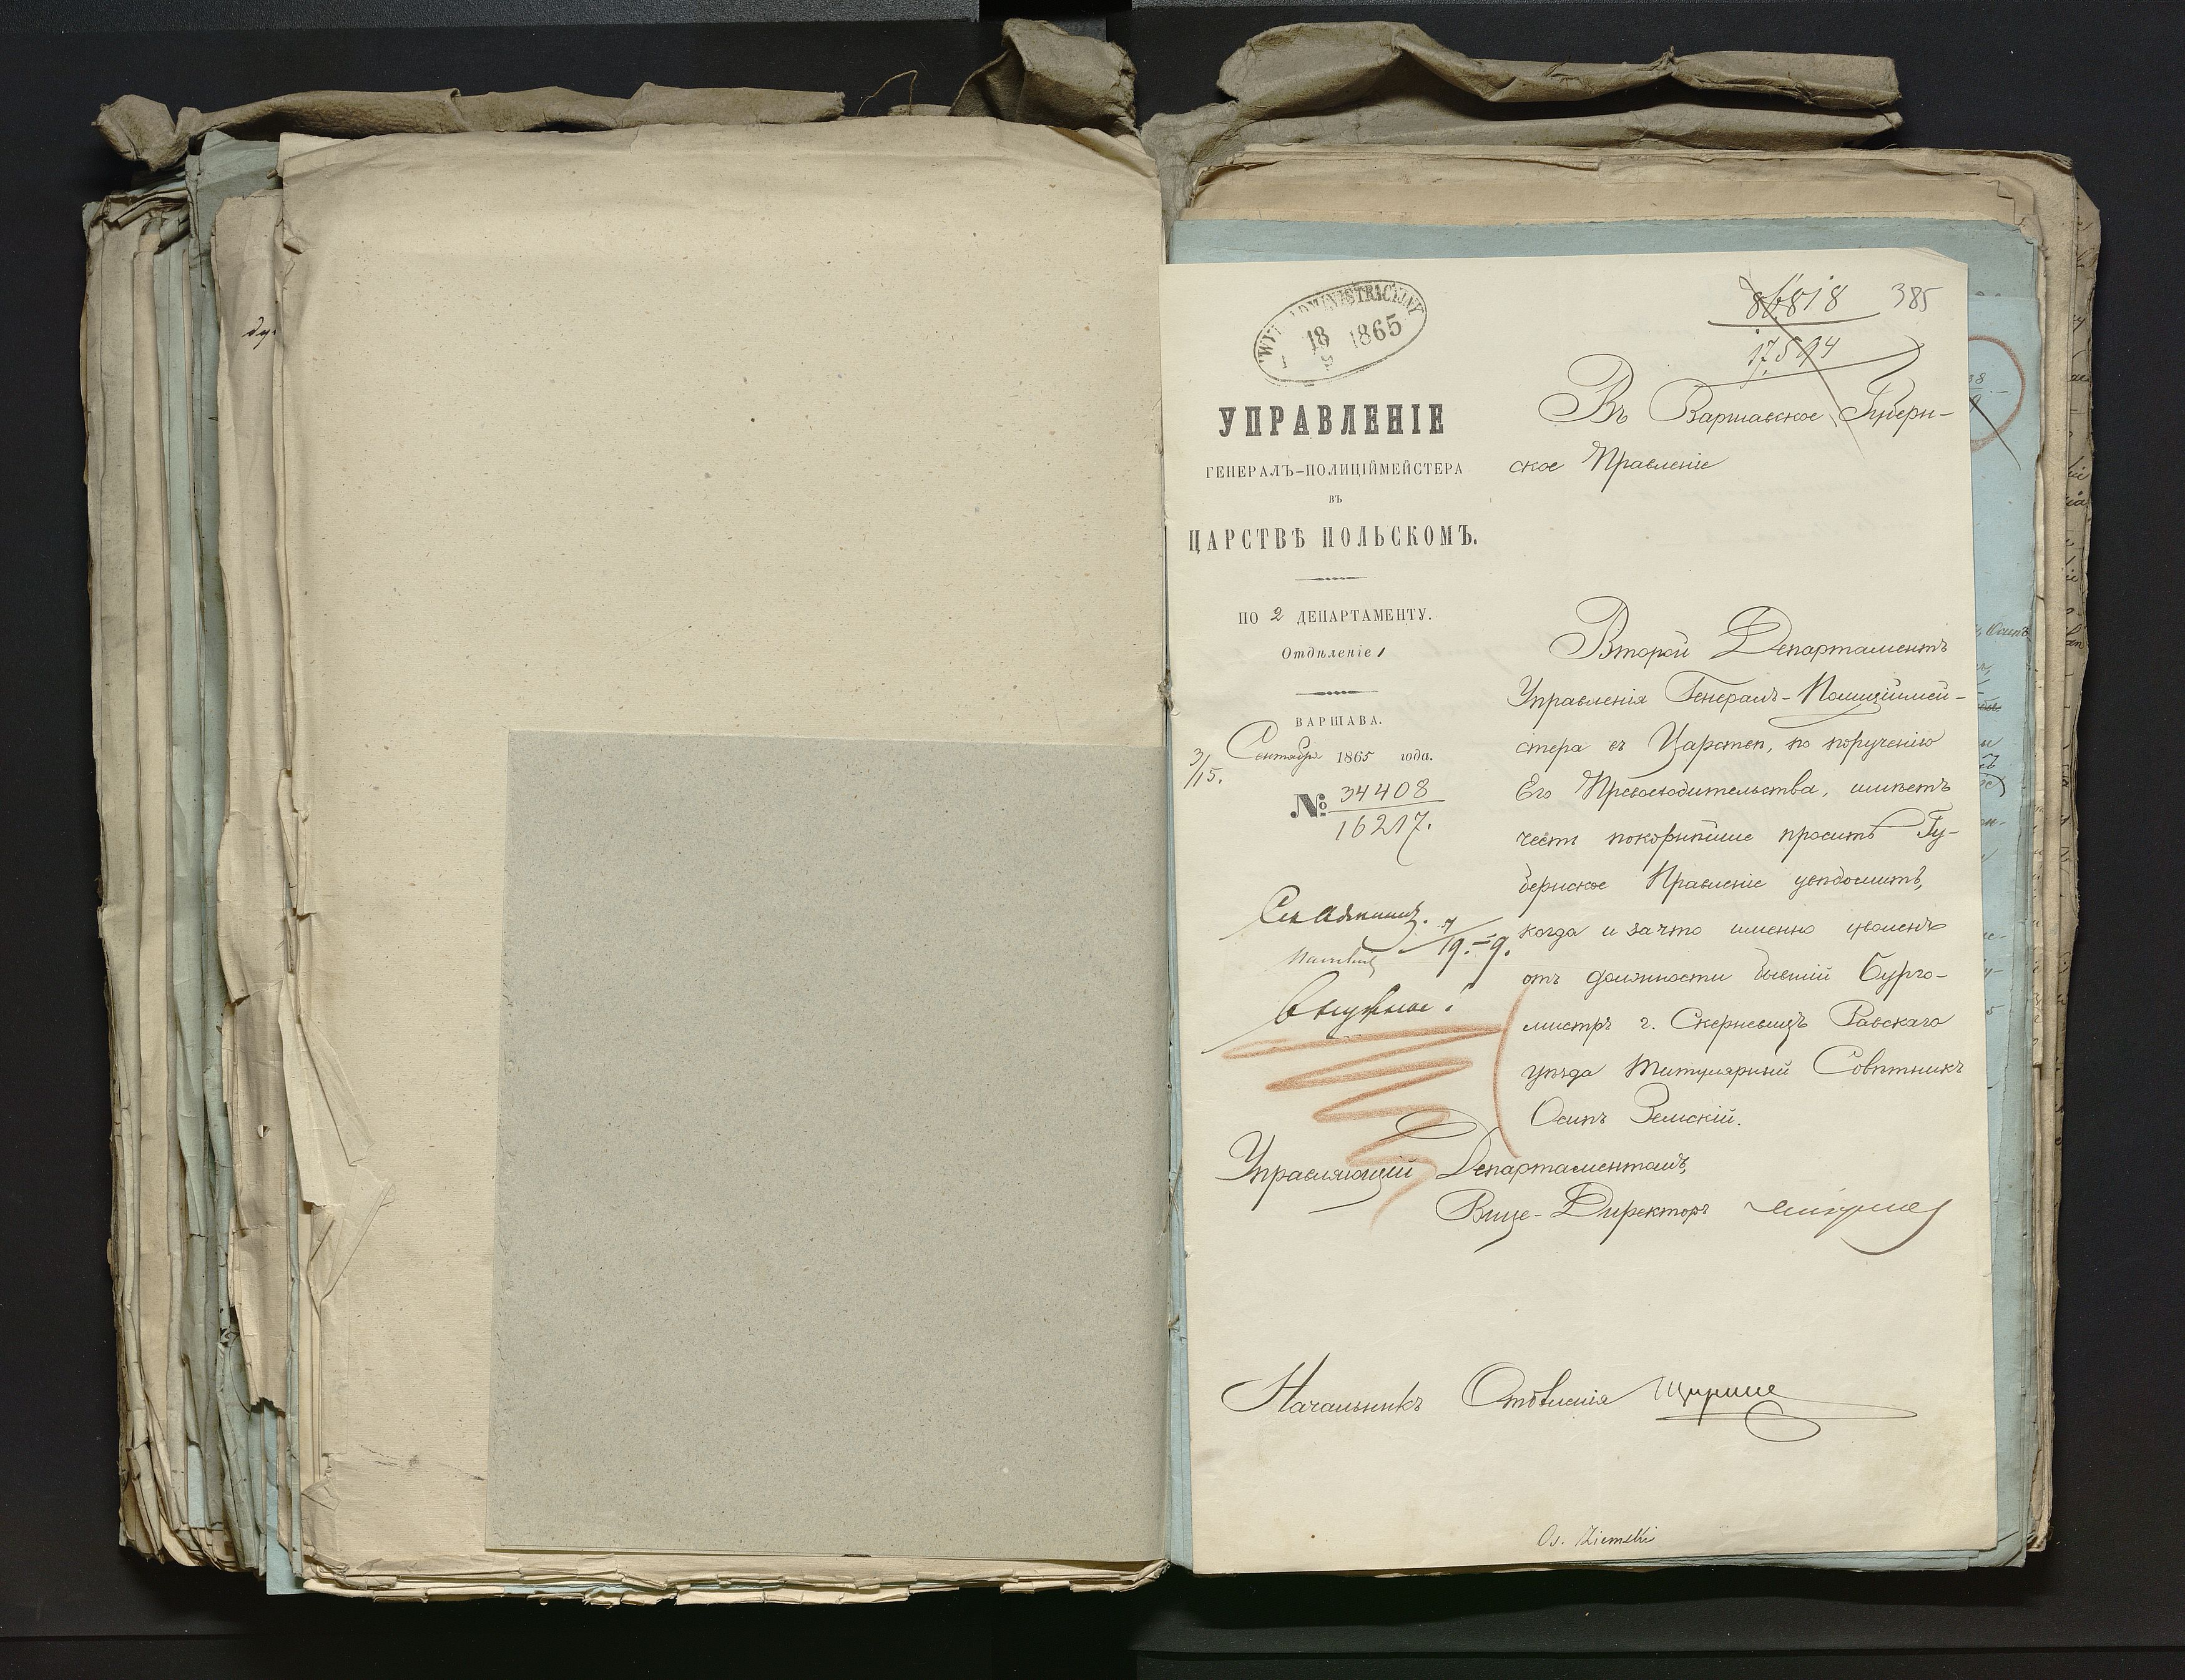 86818
17,594
385
WYD ADMINISTRACYJNY
18
9
1865
УПРАВЛЕНІЕ
ГЕНЕРАЛЪ-ПОЛИЦІЙМЕЙСТЕРА
ВЪ
ЦАРСТВѢ ПОЛЬСКОМЪ.
ПО 2 ДЕПАРТАМЕНТУ.
Отдѣленіе 1
ВАРШАВА.
3/15. Сентября 1865 года.
№ 34408
16217.
7/19.-9.
Въ Варшавское Губерн-
ское Правленіе
Второй Департаментъ
Управленія Генералъ-Полиціймей-
стера въ Царствѣ, по порученію
Его Превосходительства, имѣетъ
честь покорнѣйше просить Гу-
бернское Правленіе увѣдомить,
когда и за что именно уволенъ
отъ должности бывшій Бурго-
мистръ г. Скерневицъ Равскаго
уѣзда Титулярный Совѣтникъ
Осипъ Земскій.
Управляющій Департаментомъ,
Вице-Директоръ
Начальникъ Отдѣленія
Os. Ziemski